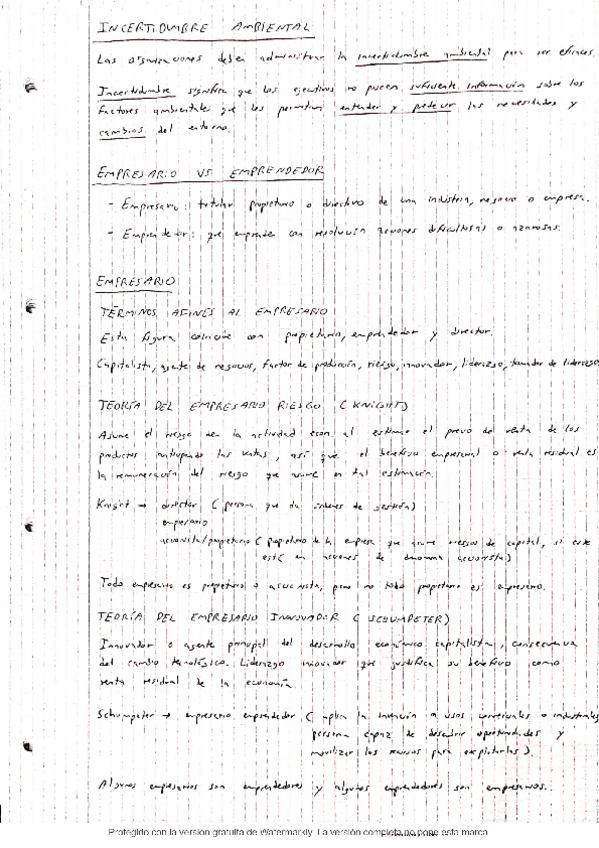 INCERTIDUMBRE AMBIENTAL
Las organizaciones deben administrar la incertidumbre ambiental para ser eficaces.
Incertidumbre significa que los ejecutivos no poseen suficiente información sobre los
factores ambientales que les permitan entender y predecir las necesidades y
cambios del entorno.
EMPRESARIO VS EMPRENDEDOR
- Empresario: titular propietario o directivo de una industria, negocio o empresa.
- Emprendedor: que emprende con resolución acciones dificultosas o azarosas.
EMPRESARIO
TÉRMINOS AFINES AL EMPRESARIO
Esta figura coincide con propietario, emprendedor y director.
Capitalista, agente de negocios, factor de producción, riesgo, innovador, liderazgo, tomador de
TEORÍA DEL EMPRESARIO RIESGO (KNIGHT)
Asume el riesgo de la actividad econ. al estimar el precio de venta de los
productos anticipando las ventas, así que el beneficio empresarial o renta residual es
la remuneración del riesgo que asume en tal estimación.
Knight → director (persona que da órdenes de gestión)
empresario
accionista/propietario (propietario de la empresa que asume riesgos de capital, si este
está en acciones se denomina accionista)
Todo empresario es propietario o accionista, pero no todo propietario es empresario.
TEORÍA DEL EMPRESARIO INNOVADOR (SCHUMPETER)
Innovador o agente principal del desarrollo económico capitalista, consecuencia
del cambio tecnológico. Liderazgo innovador que justifica su beneficio como
renta residual de la economía.
Schumpeter → empresario emprendedor (aplica la invención a usos comerciales o industriales,
persona capaz de descubrir oportunidades y
movilizar los recursos para explotarlas).
Algunos empresarios son emprendedores y algunos emprendedores son empresarios.
Protegido con la versión gratuita de Watermarkly. La versión completa no pone esta marca.